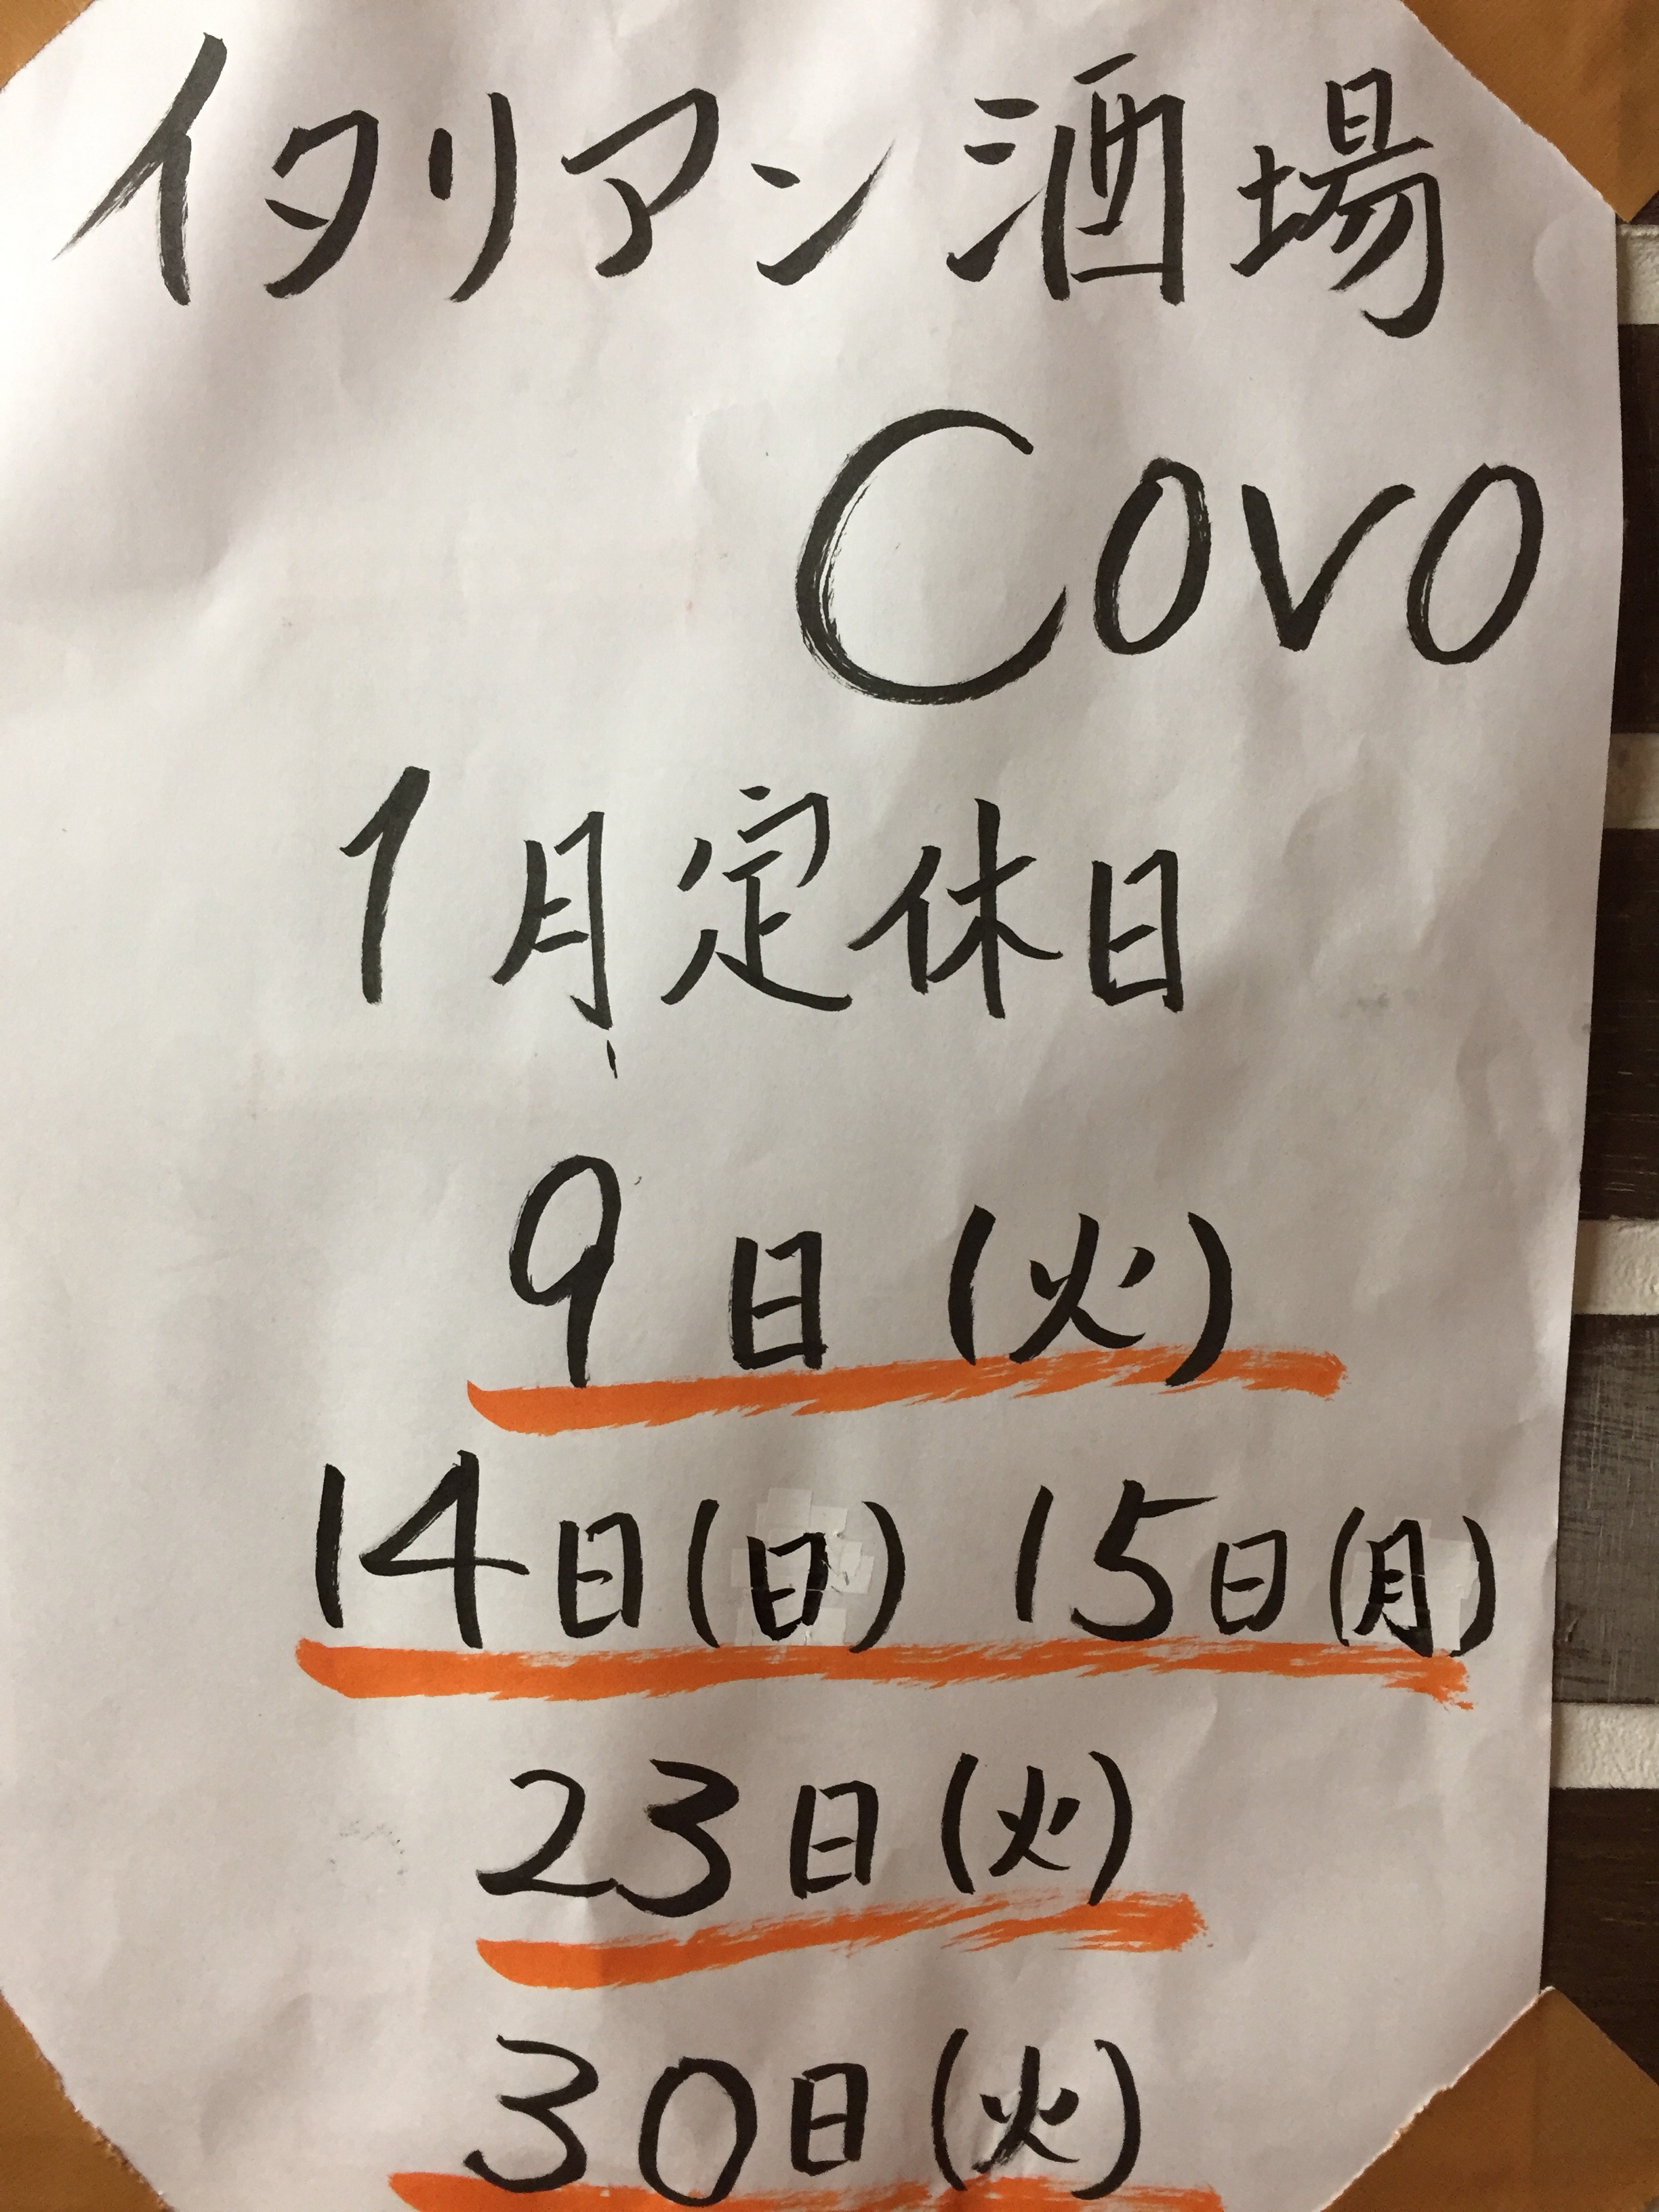 イタリアン酒場
Covo
1月定休日
9日(火)
14日(日) 15日(月)
23日(火)
30日(火)